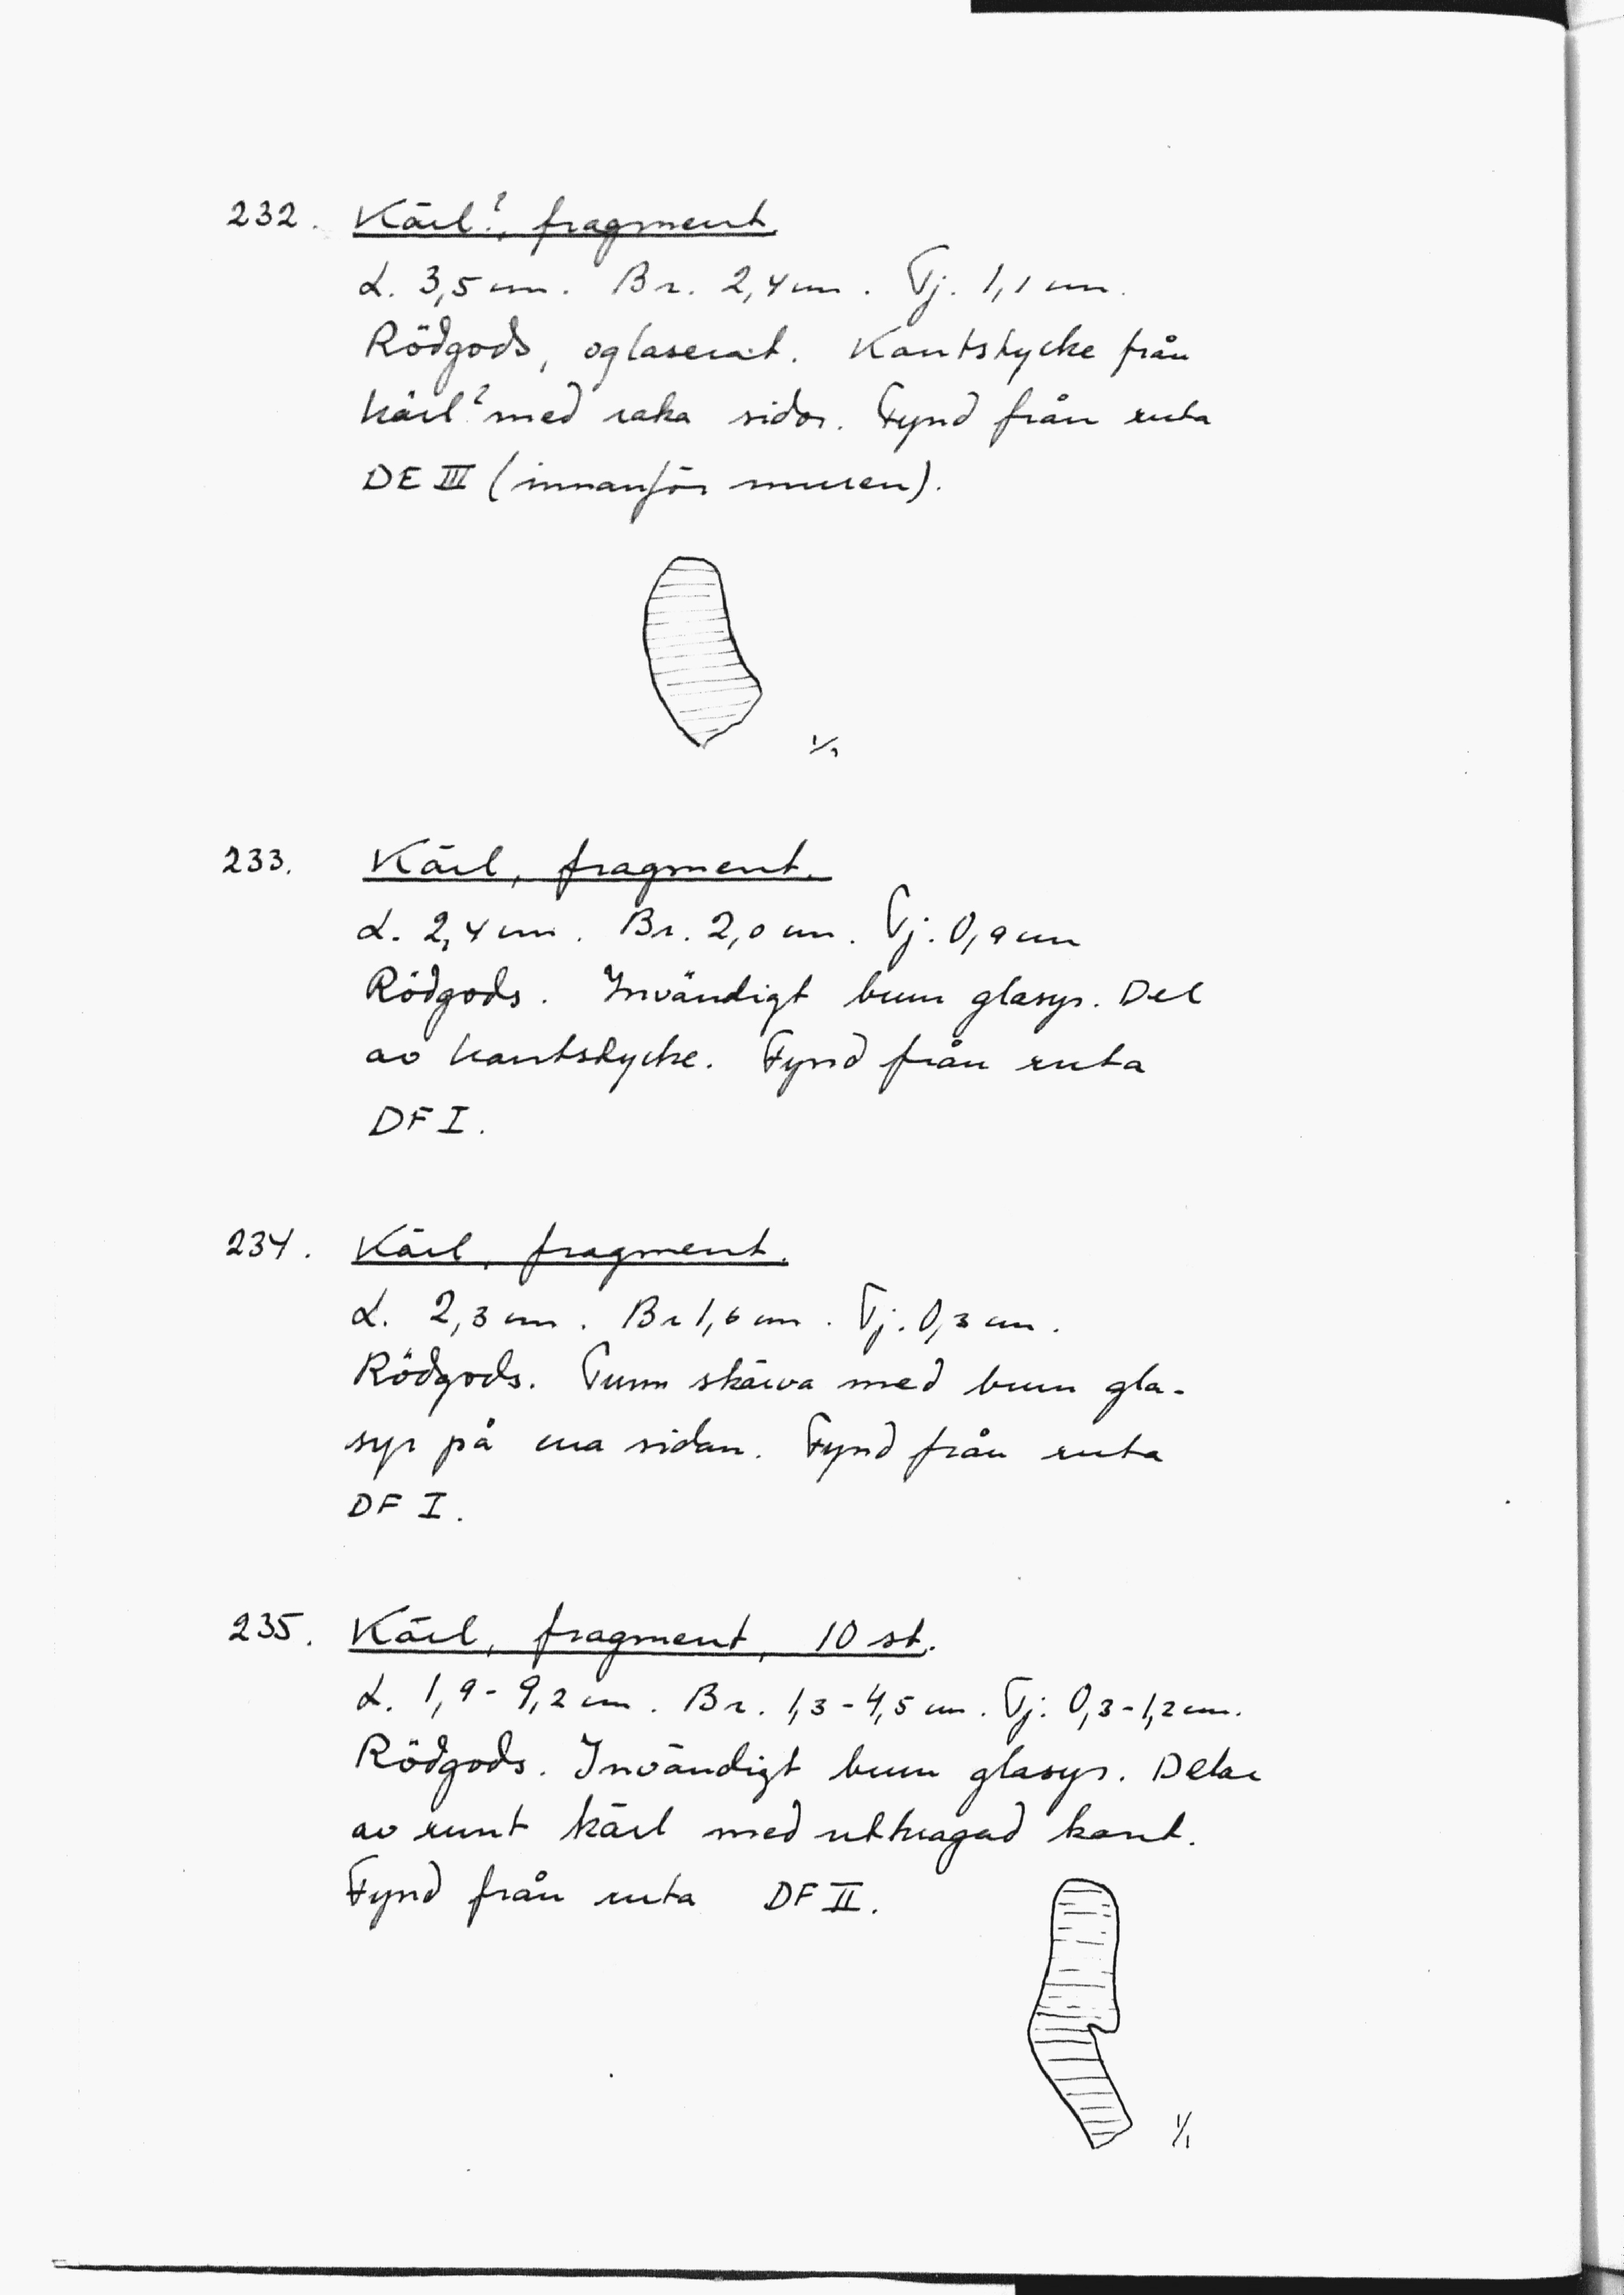 232. Kärl?, fragment.
L. 3,5 cm. Br. 2,4 cm. Tj. 1,1 cm.
Rödgods, oglaserat. Kantstycke från
kärl? med raka sidor. Fynd från ruta
DE III (innanför muren).
1/1
233. Kärl, fragment.
L. 2,4 cm. Br. 2,0 cm. Tj. 0,9 cm
Rödgods. Invändigt brun glasyr. Del
av kantstycke. Fynd från ruta
DF I.
234. Kärl, fragment.
L. 2,3 cm. Br 1,6 cm. Tj. 0,3 cm.
Rödgods. Tunn skärva med brun gla-
syr på ena sidan. Fynd från ruta
DF I.
235. Kärl, fragment, 10 st.
L. 1,9-9,2 cm. Br. 1,3-4,5 cm. Tj. 0,3-1,2 cm.
Rödgods. Invändigt brun glasyr. Delar
av runt kärl med uttragad kant.
Fynd från ruta DF II.
1/1